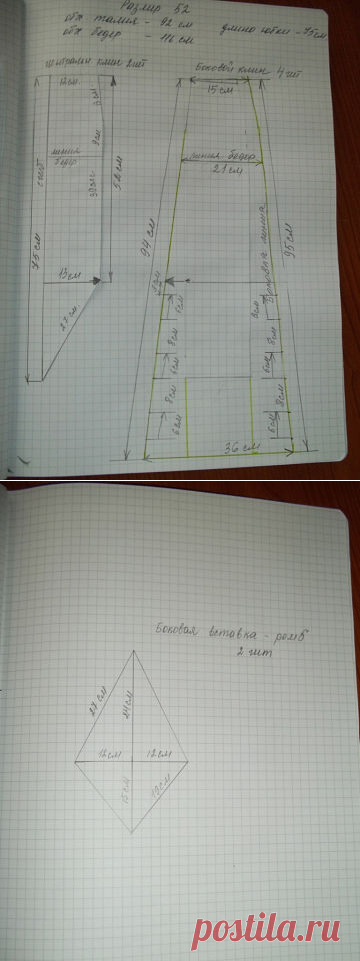 Размер 52
обх талия - 92 см
обх бедер - 116 см
длина юбки - 75 см
центральн клин 2 шт
Боковой клин 4 шт
12 см
15 см
линия
бедер
линия бедер
21 см
75 см
52 см
94 см
95 см
Боковая линия
13 см
27 см
8 см
6 см
8 см
6 см
8 см
6 см
8 см
6 см
8 см
6 см
36 см
Боковая вставка - ромб
2 шт
27 см
24 см
12 см
12 см
15 см
19 см
postila.ru